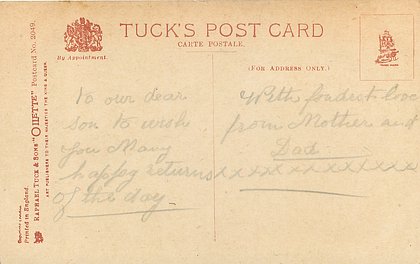 TUCK'S POST CARD
CARTE POSTALE.
By Appointment.
(FOR ADDRESS ONLY.)
To our dear
son to wish
you Many
happy returns
of the day
With fondest love
from Mother and
Dad
xxxxxxxxxxxx
RAPHAEL TUCK & SONS' "OILETTE" Postcard No. 2049.
ART PUBLISHERS TO THEIR MAJESTIES THE KING & QUEEN.
Printed in England.